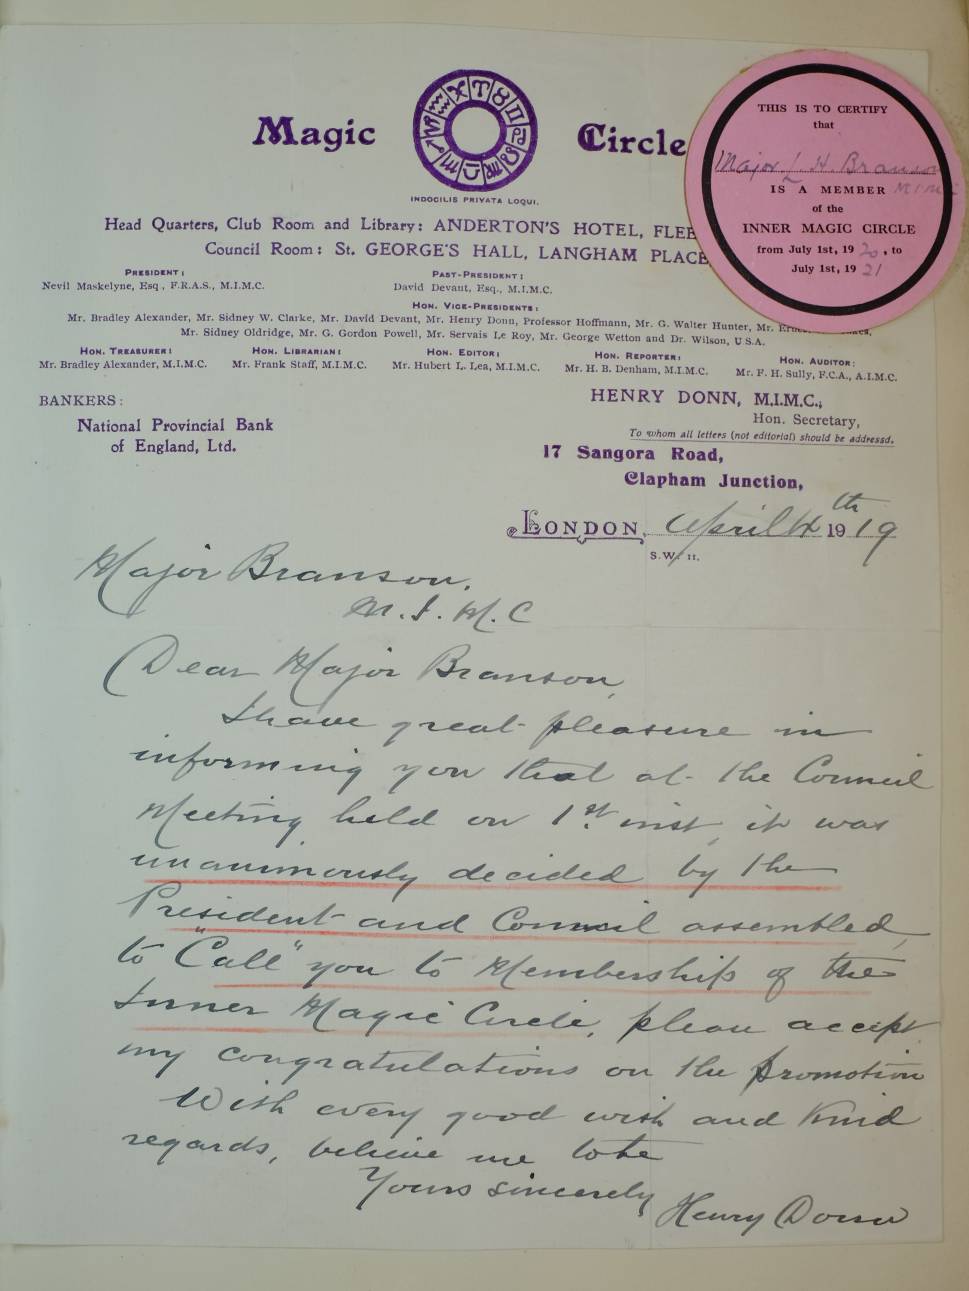 Magic Circle
INDOCILIS PRIVATA LOQUI.
Head Quarters, Club Room and Library: ANDERTON'S HOTEL,
Council Room: St. GEORGE'S HALL, LANGHAM PLACE
THIS IS TO CERTIFY
that
Major L H Branson
IS A MEMBER M.I.M.C
of the
INNER MAGIC CIRCLE
from July 1st, 1920, to
July 1st, 1921
PRESIDENT:
Nevil Maskelyne, Esq., F.R.A.S., M.I.M.C.
PAST-PRESIDENT:
David Devant, Esq., M.I.M.C.
HON. VICE-PRESIDENTS:
Mr. Bradley Alexander, Mr. Sidney W. Clarke, Mr. David Devant, Mr. Henry Donn, Professor Hoffmann, Mr. G. Walter Hunter, Mr.
Mr. Sidney Oldridge, Mr. G. Gordon Powell, Mr. Servais Le Roy, Mr. George Wetton and Dr. Wilson, U.S.A.
HON. TREASURER:
Mr. Bradley Alexander, M.I.M.C.
HON. LIBRARIAN:
Mr. Frank Staff, M.I.M.C.
HON. EDITOR:
Mr. Hubert L. Lea, M.I.M.C.
HON. REPORTER:
Mr. H. B. Denham, M.I.M.C.
HON. AUDITOR:
Mr. F. H. Sully, F.C.A., A.I.M.C.
BANKERS:
National Provincial Bank
of England, Ltd.
HENRY DONN, M.I.M.C.,
Hon. Secretary,
To whom all letters (not editorial) should be addressd.
17 Sangora Road,
Clapham Junction,
LONDON, April 4th 1919
S.W. 11.
Major Branson,
M.I.M.C
Dear Major Branson,
I have great pleasure in
informing you that at the Council
Meeting held on 1st. inst, it was
unanimously decided by the
President and Council assembled,
to "Call" you to Membership of the
Inner Magic Circle, please accept
my congratulations on the promotion
With every good wish and kind
regards, believe me to be
Yours sincerely
Henry Donn